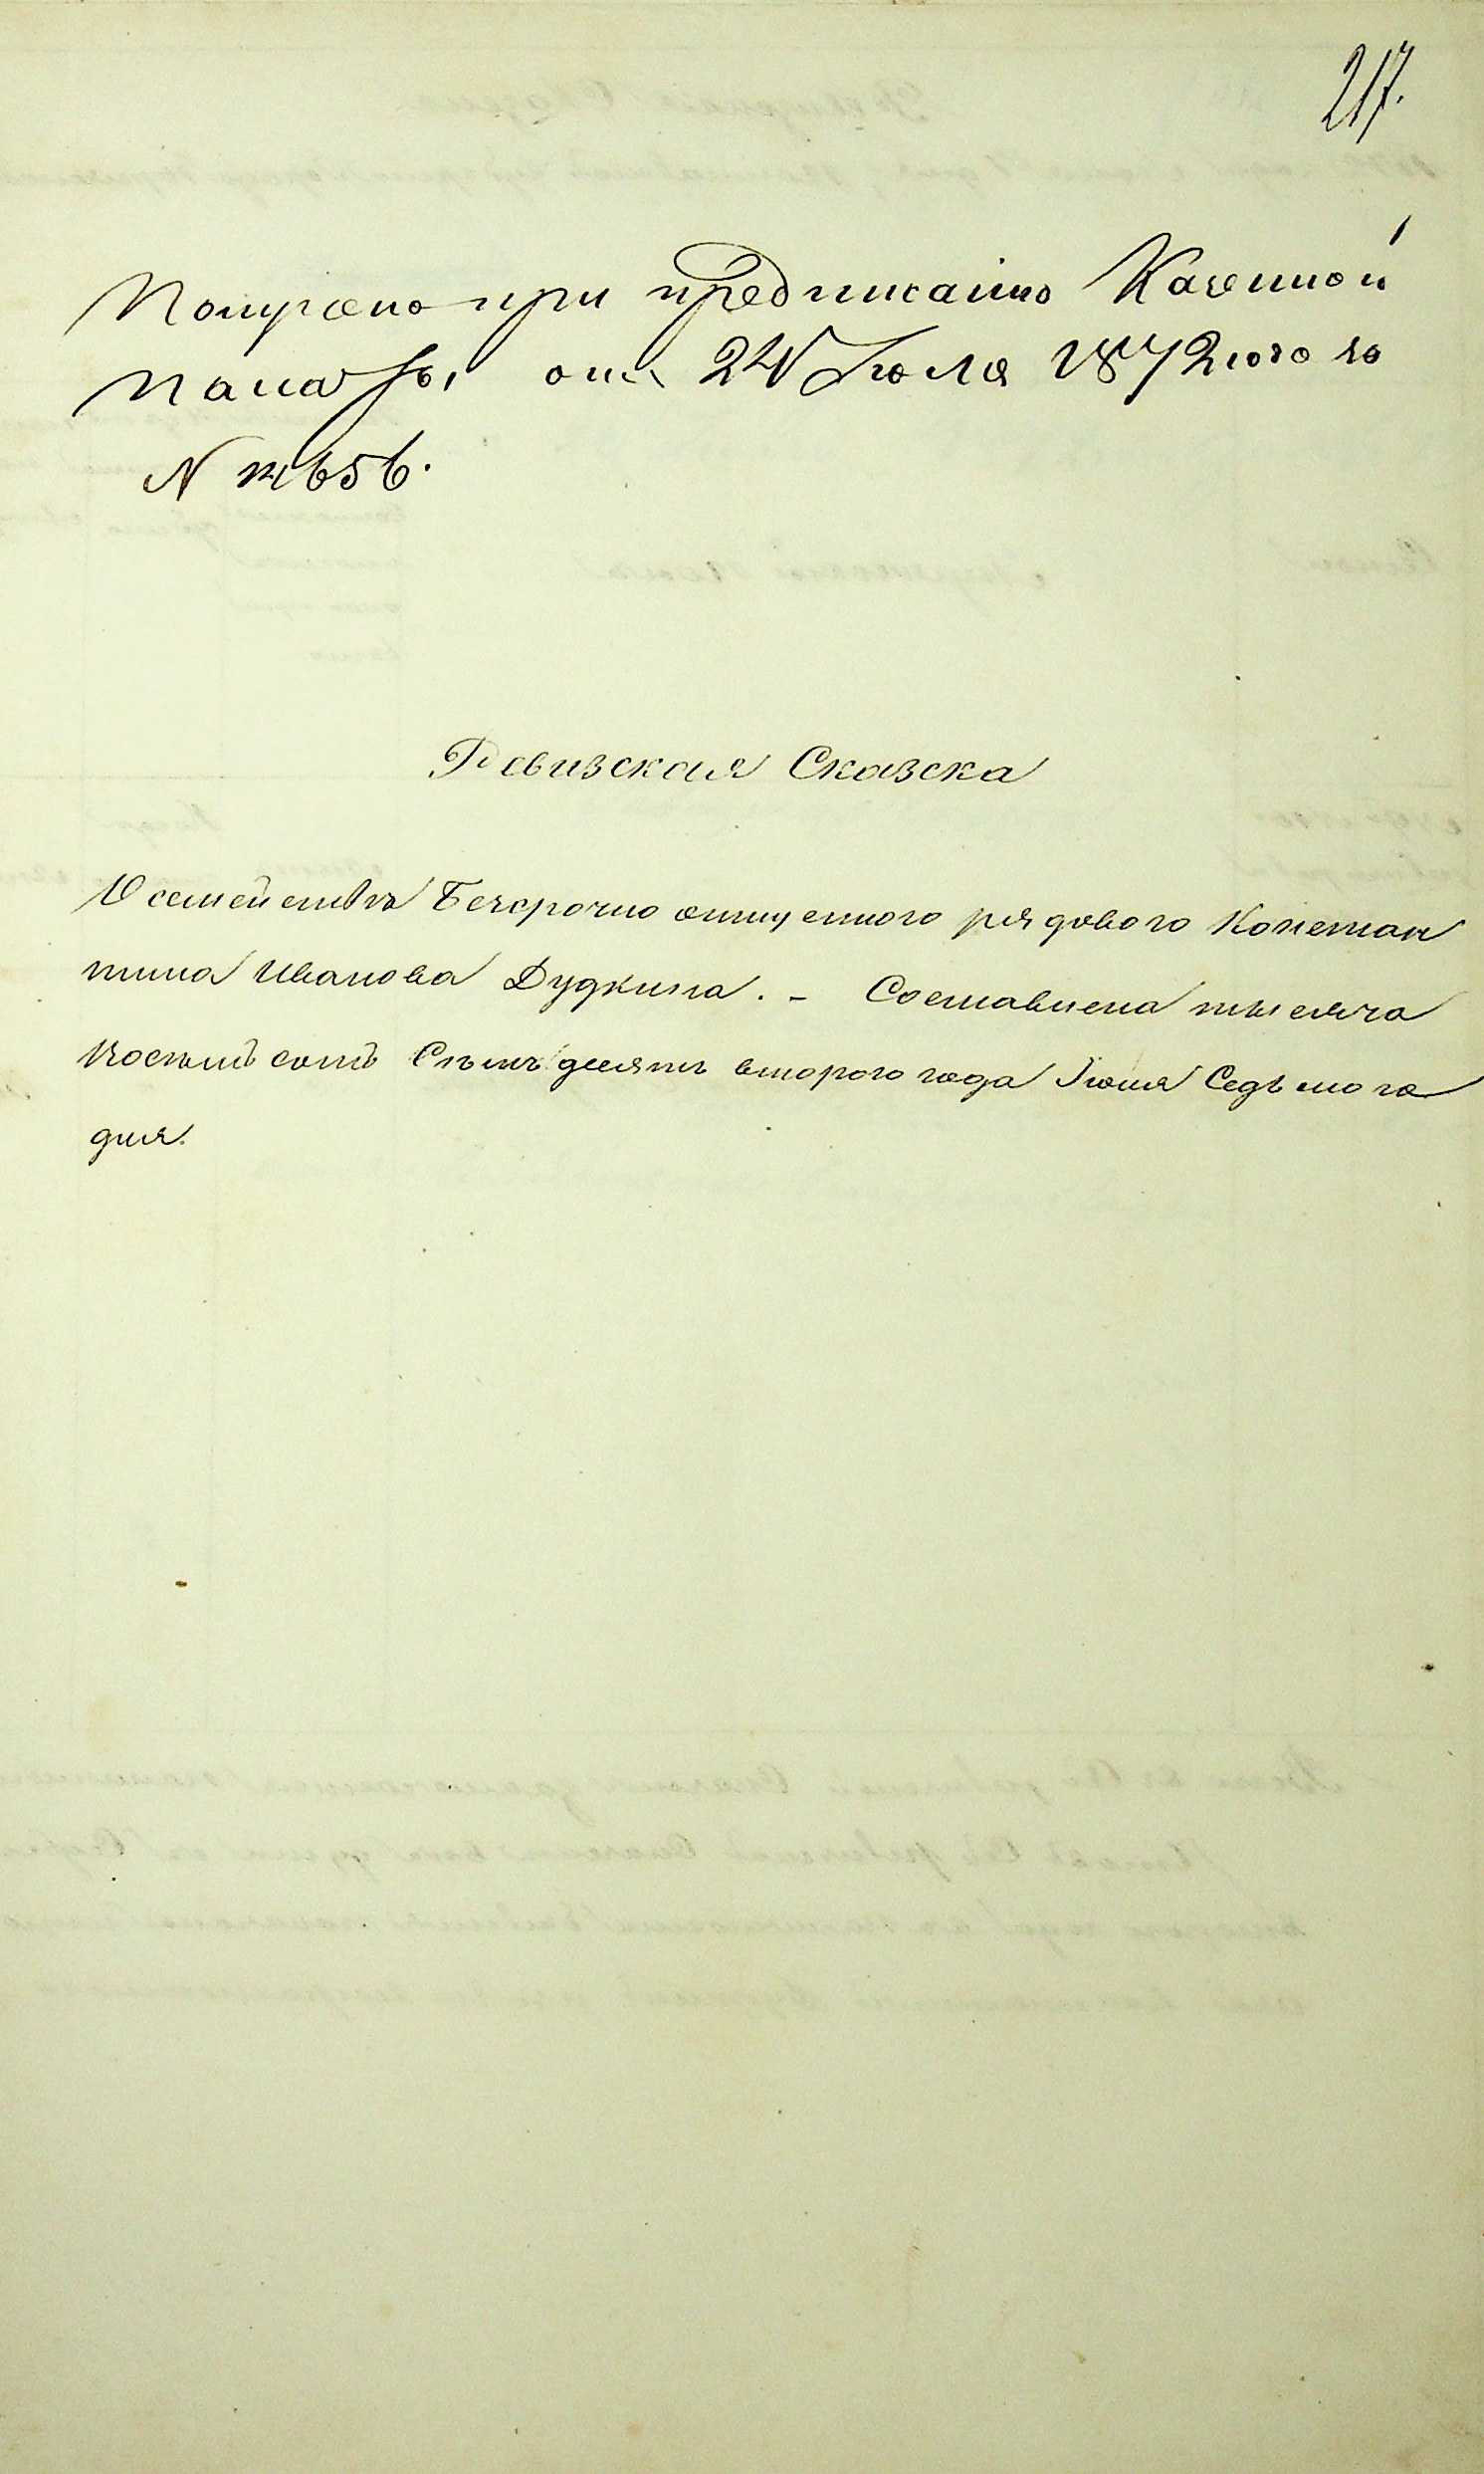 217.
Получено при предписанію Казенной
Палаты, отъ 24 Іюля 1872 го го
N
Ревизская Сказска
О семействѣ Безсрочно отпущенного рядового Констан
тина Иванова Дудкина. - Составлена тысяча
Восемь сотъ Семъдесятъ второго года Іюня Седьмого
дня.